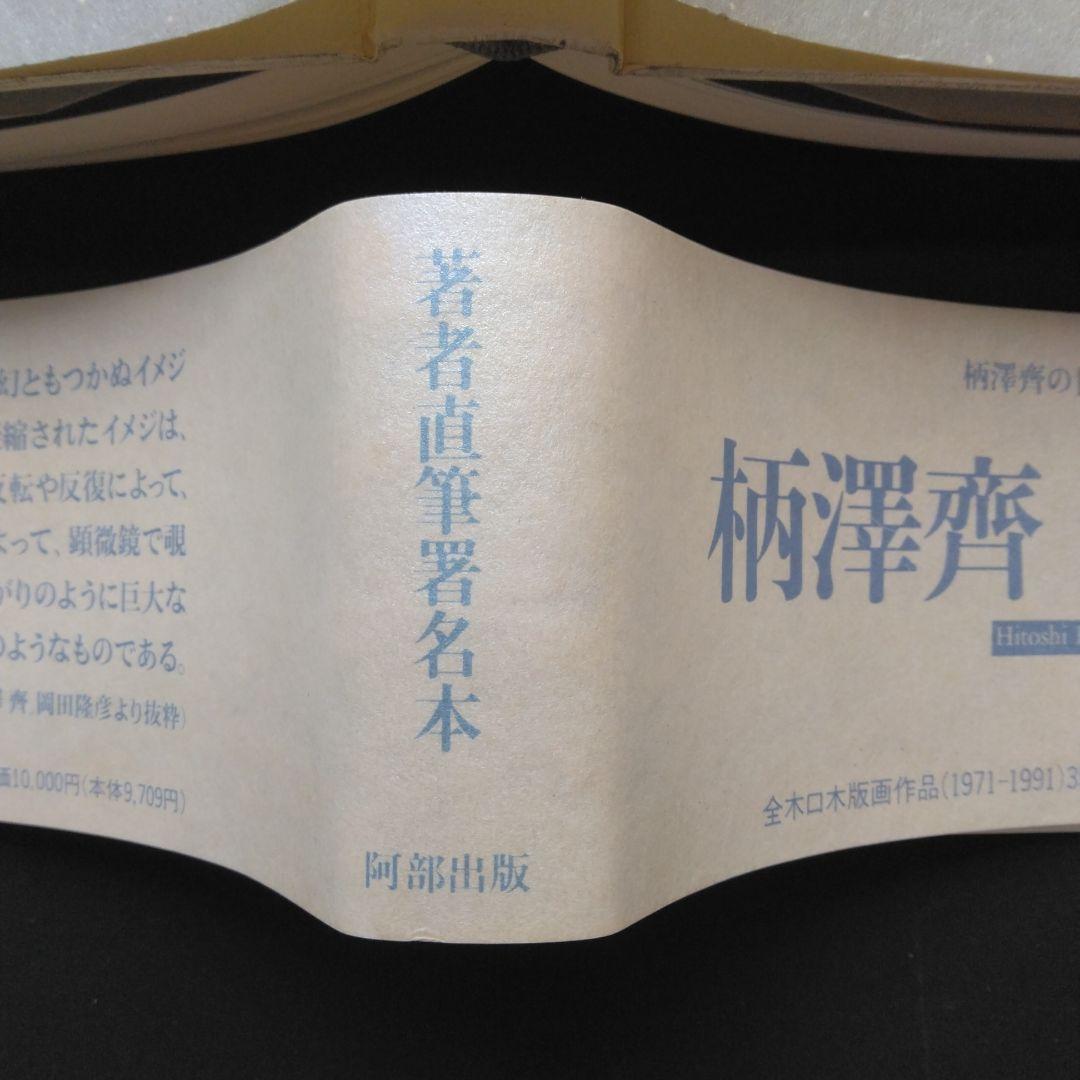 著者直筆署名本
阿部出版
柄澤齊の
柄澤齊
Hitoshi
全木口木版画作品(1971-1991)3
幻ともつかぬイメジ
縮されたイメジは、
反転や反復によって、
よって、顕微鏡で覗
がりのように巨大な
のようなものである。
齊 岡田隆彦より抜粋)
価10,000円(本体9,709円)